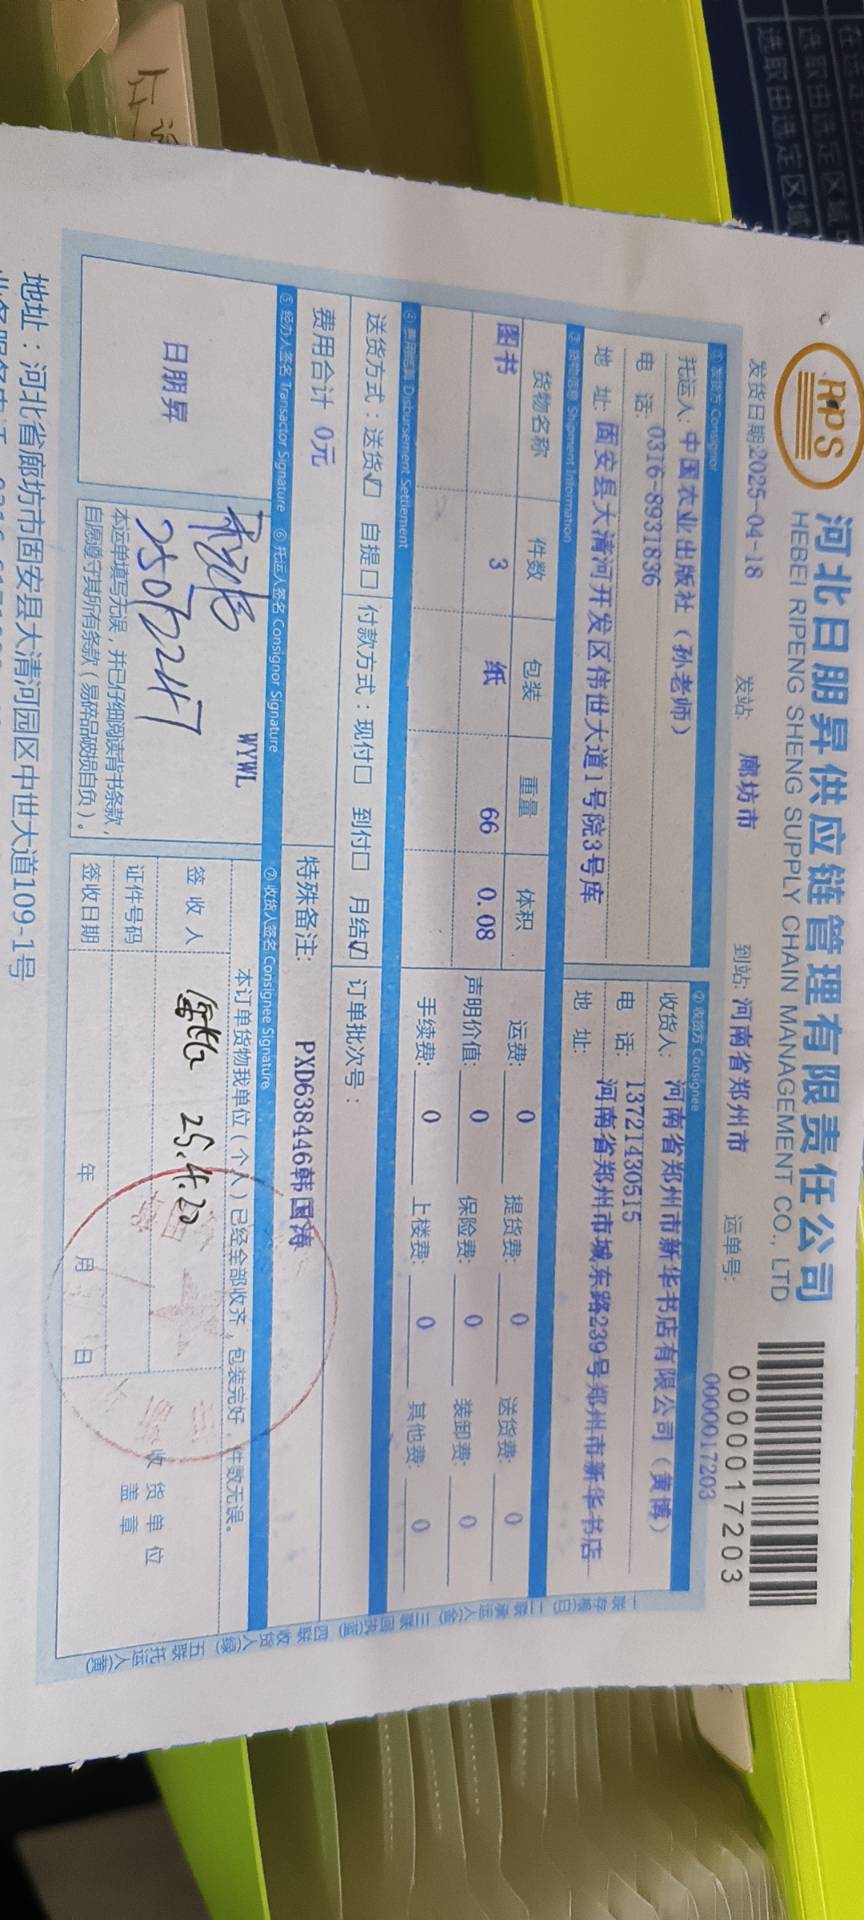 RPS
河北日朋昇供应链管理有限责任公司
HEBEI RIPENG SHENG SUPPLY CHAIN MANAGEMENT CO., LTD
00000017203
0000017203
发货日期:2025-04-18 发站: 廊坊市 到站: 河南省郑州市 运单号:
① 发货方 Consignor ② 收货方 Consignee
托运人: 中国农业出版社（孙老师） 收货人: 河南省郑州市新华书店有限公司（黄博）
电 话: 0316-8931836 电 话: 13721430515
地 址: 固安县大清河开发区伟世大道1号院3号库 地 址: 河南省郑州市城东路239号郑州市新华书店
③ 货物信息 Shipment Information
货物名称 件数 包装 重量 体积 运费: 0 提货费: 0 送货费: 0
图书 3 纸 66 0.08 声明价值: 0 保险费: 0 装卸费: 0
手续费: 0 上楼费: 0 其他费: 0
④ 费用结算 Disbursement Settlement
送货方式：送货☑ 自提☐ 付款方式：现付☐ 到付☐ 月结☑ 订单批次号：
费用合计 0元 特殊备注: PXD638446韩国涛
⑤ 经办人签名 Transactor Signature ⑥ 托运人签名 Consignor Signature ⑦ 收货人签名 Consignee Signature
日朋昇
WYWL
本运单填写无误，并已仔细阅读背书条款，
自愿遵守其所有条款（易碎品破损自负）。
本订单货物我单位（个人）已经全部收齐，包装完好，件数无误。
签 收 人 25.4.20
证件号码
签收日期 年 月 日
收货单位
盖 章
一联存根(白) 二联承运人(金) 三联回执(蓝) 四联收货人(绿) 五联托运人(黄)
地址：河北省廊坊市固安县大清河园区中世大道109-1号